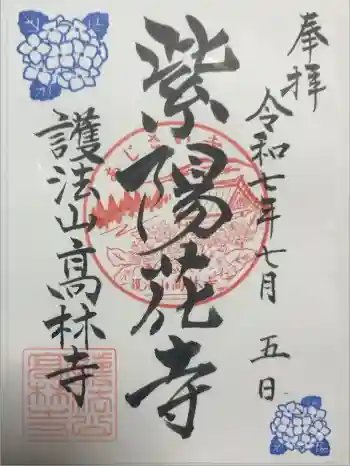 奉拝
令和七年七月 五日
紫陽花寺
護法山高林寺
あじさい寺